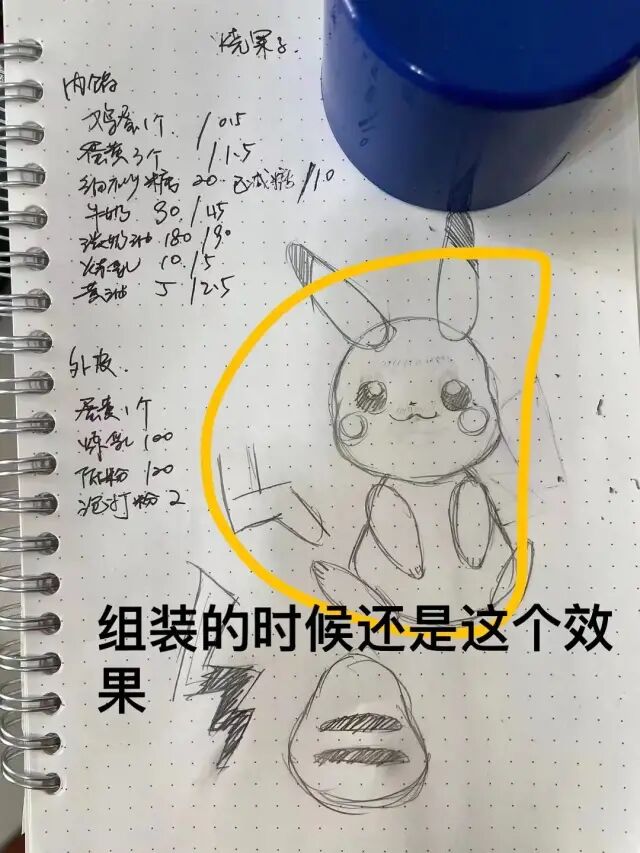 烧果子
内馅
鸡蛋1个 /0.5
蛋黄3个 /1.5
细砂糖 20 已减糖 /10
牛奶 90 /45
淡奶油 180 /90
炼乳 10 /5
黄油 5 /2.5
外皮
蛋黄1个
炼乳 100
低粉 120
泡打粉 2
组装的时候还是这个效
果